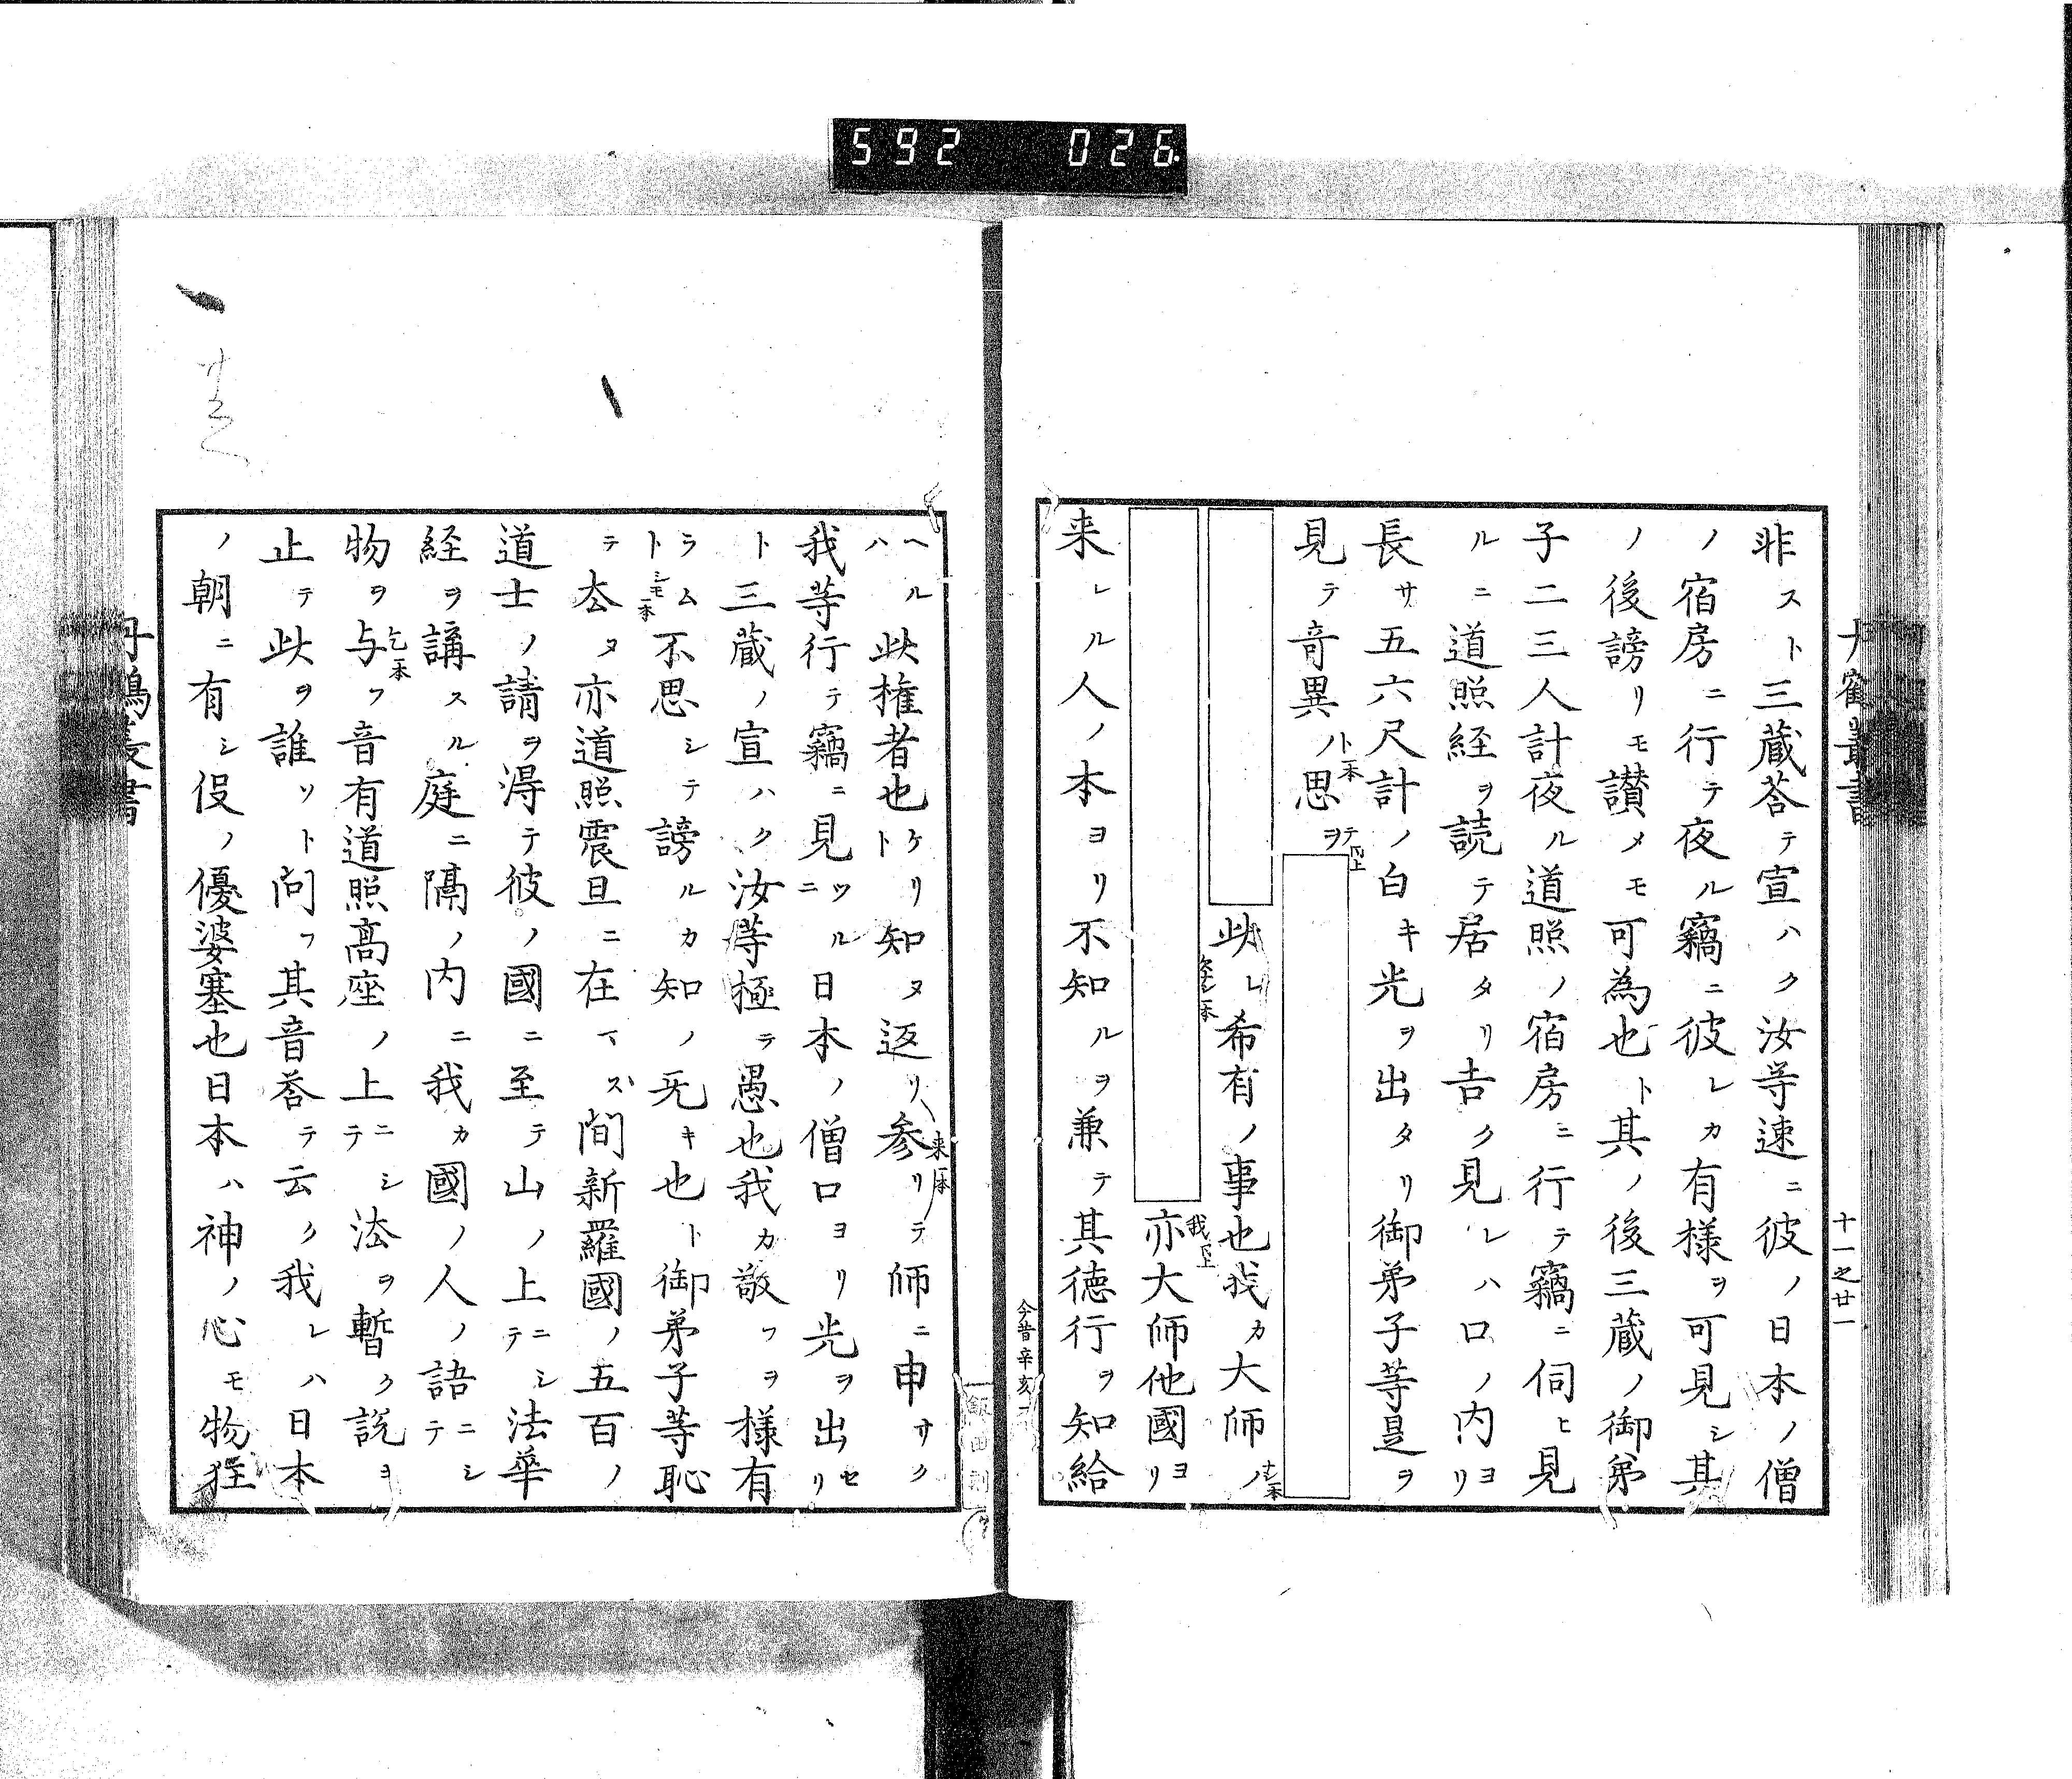 592 026
十一之廿一
非スト三蔵荅テ宣ハク汝等速ニ彼ノ日本ノ僧
ノ宿房ニ行テ夜ル竊ニ彼レカ有様ヲ可見シ其
ノ後謗リモ讃メモ可為也ト其ノ後三蔵ノ御弟
子二三人計夜ル道照ノ宿房ニ行テ竊ニ伺ヒ見
ルニ道照経ヲ読テ居タリ吉ク見レハ口ノ内ヨリ
長サ五六尺計ノ白キ光ヲ出タリ御弟子等是ヲ
見テ奇異ノト一本思ヲテ
此レ希有ノ事也我カ大師ノ
亦大師他國ヨリ
来レル人ノ本ヨリ不知ルヲ兼テ其徳行ヲ知給
今昔辛亥二
ヘルハ此権者也ケリト知ヌ返リ参リ来一本テ師ニ申サク
我等行テ竊ニ見ツルニ日本ノ僧口ヨリ光ヲ出セリ
ト三蔵ノ宣ハク汝等極テ愚也我カ敬フヲ様有
ラムトシモ一本不思シテ謗ルカ知ノ无キ也ト御弟子等恥
テ厺ヌ亦道照震旦ニ在マス間新羅國ノ五百ノ
道士ノ請ヲ得テ彼ノ國ニ至テ山ノ上ニシテ法華
経ヲ講スル庭ニ隔ノ内ニ我カ國ノ人ノ語ニシテ
物ヲ与乞一本フ音有道照髙座ノ上ニシテ法ヲ暫ク説ヨ
止テ此ヲ誰ソト問フ其音荅テ云ク我レハ日本
ノ朝ニ有シ役ノ優婆塞也日本ハ神ノ心モ物狂